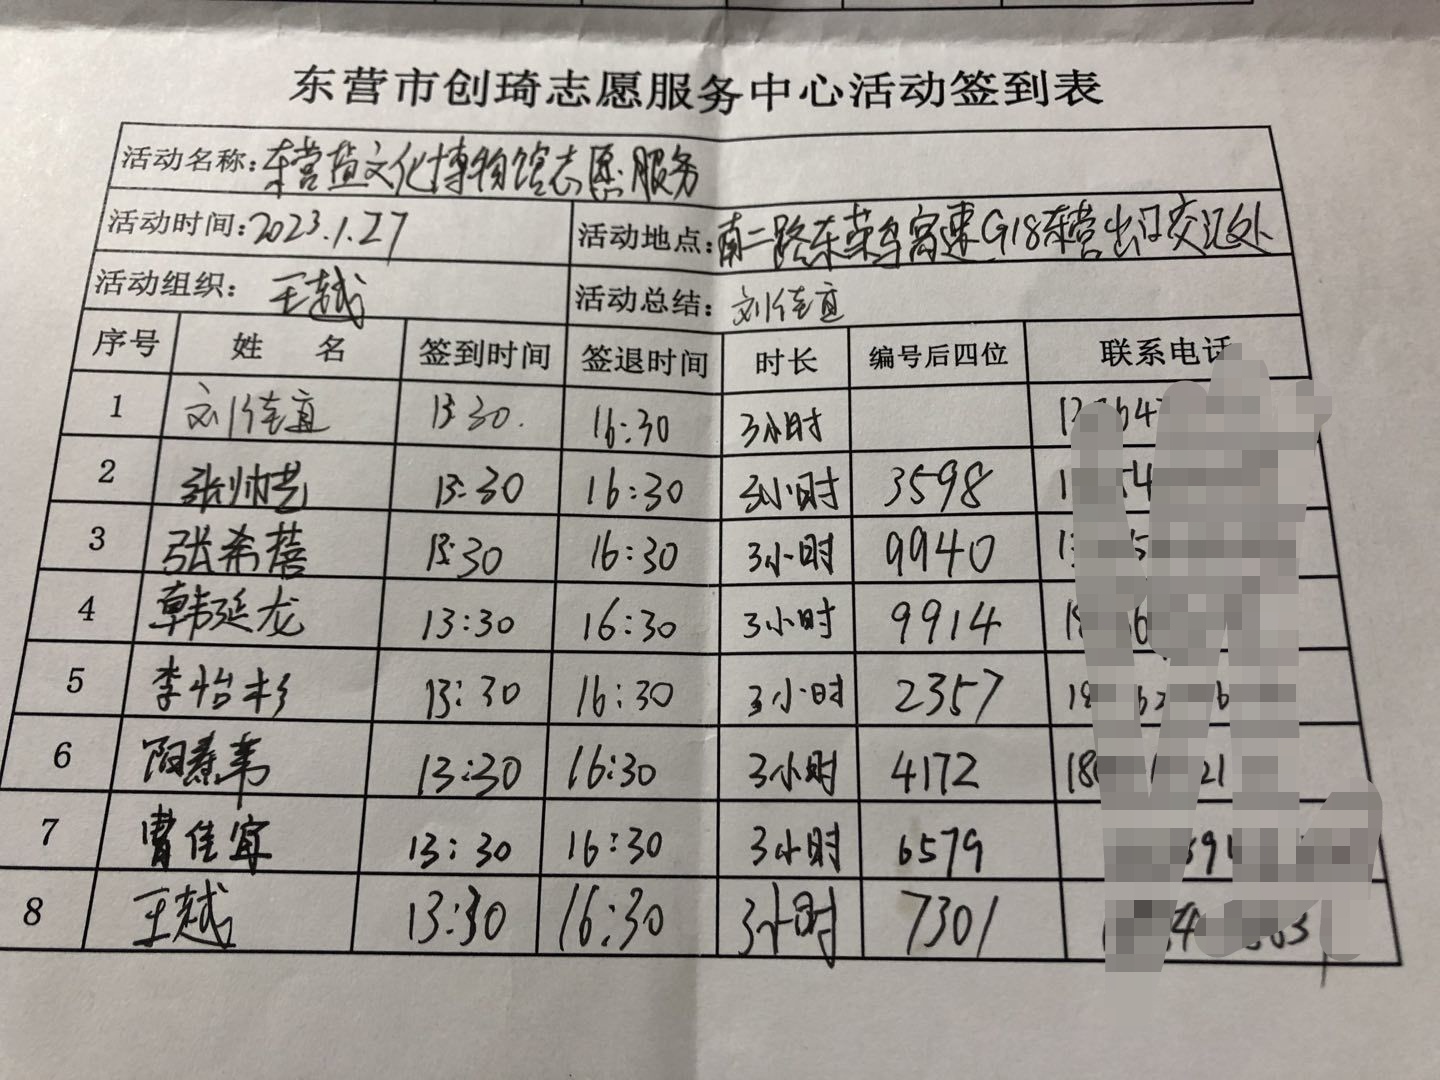 东营市创琦志愿服务中心活动签到表
活动名称：东营盐文化博物馆志愿服务
活动时间：2023.1.27 活动地点：南二路东荣乌高速G18东营出口交汇处
活动组织：王越 活动总结：刘佳宜
序号 姓 名 签到时间 签退时间 时长 编号后四位 联系电话
1 刘佳宜 13:30. 16:30 3小时
2 张帅艺 13:30 16:30 3小时 3598
3 张希蓓 13:30 16:30 3小时 9940
4 韩延龙 13:30 16:30 3小时 9914
5 李怡杉 13:30 16:30 3小时 2357
6 13:30 16:30 3小时 4172
7 曹佳宜 13:30 16:30 3小时 6579
8 王越 13:30 16:30 3小时 7301